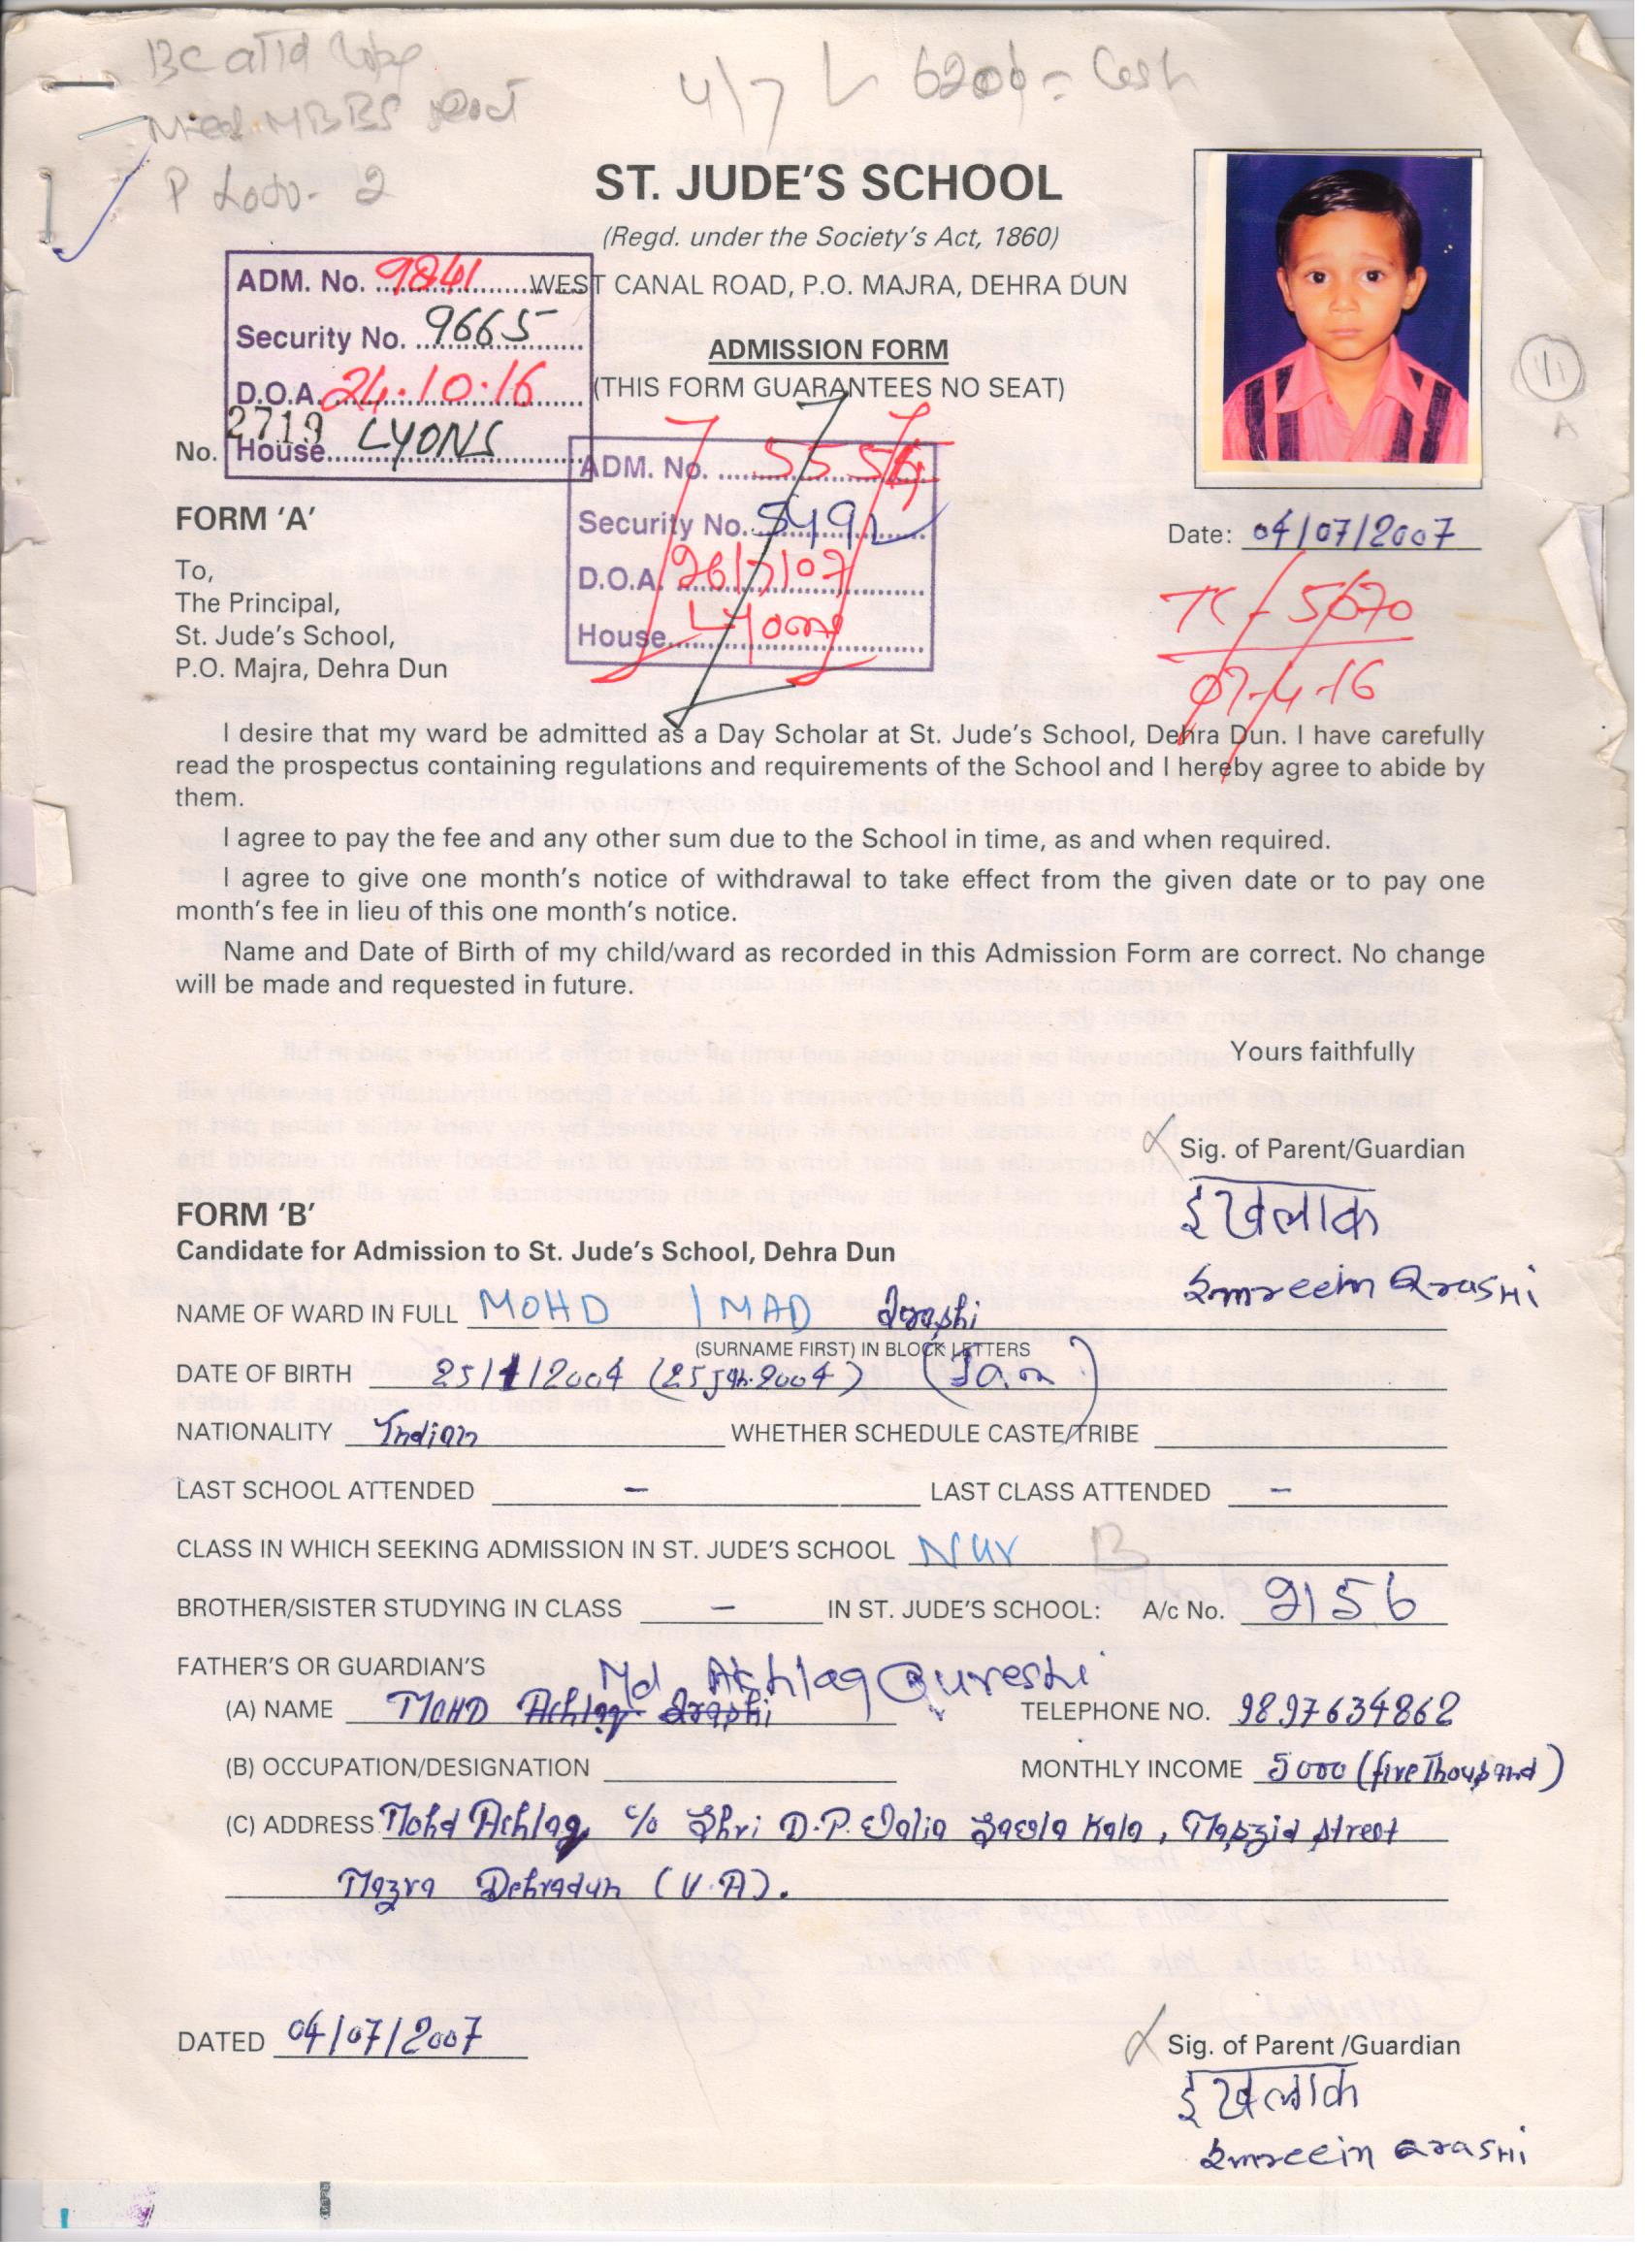 BC attd Copy
Need MBBS
Photo - 2
4/7 6200/= Cash
ST. JUDE'S SCHOOL
(Regd. under the Society's Act, 1860)
WEST CANAL ROAD, P.O. MAJRA, DEHRA DUN
ADM. No. 9841
Security No. 9665
D.O.A. 24.10.16
House LYONS
ADMISSION FORM
(THIS FORM GUARANTEES NO SEAT)
No. 2719
11
A
ADM. No. 5554
Security No. 5492
D.O.A. 26/7/07
House Lyons
FORM 'A'
Date: 04/07/2007
TC - 5670
07-4-16
To,
The Principal,
St. Jude's School,
P.O. Majra, Dehra Dun
I desire that my ward be admitted as a Day Scholar at St. Jude's School, Dehra Dun. I have carefully
read the prospectus containing regulations and requirements of the School and I hereby agree to abide by
them.
I agree to pay the fee and any other sum due to the School in time, as and when required.
I agree to give one month's notice of withdrawal to take effect from the given date or to pay one
month's fee in lieu of this one month's notice.
Name and Date of Birth of my child/ward as recorded in this Admission Form are correct. No change
will be made and requested in future.
Yours faithfully
Sig. of Parent/Guardian
इखलाक
FORM 'B'
Candidate for Admission to St. Jude's School, Dehra Dun
NAME OF WARD IN FULL MOHD IMAD
(SURNAME FIRST) IN BLOCK LETTERS
DATE OF BIRTH 25/1/2004 (25 Jan. 2004) (Jan)
NATIONALITY Indian WHETHER SCHEDULE CASTE/TRIBE
LAST SCHOOL ATTENDED - LAST CLASS ATTENDED -
CLASS IN WHICH SEEKING ADMISSION IN ST. JUDE'S SCHOOL Nur B
BROTHER/SISTER STUDYING IN CLASS - IN ST. JUDE'S SCHOOL: A/c No. 9156
FATHER'S OR GUARDIAN'S Md Akhlaq Qureshi
(A) NAME MOHD Achlaq TELEPHONE NO. 9897634862
(B) OCCUPATION/DESIGNATION MONTHLY INCOME 5000 (five Thousand)
(C) ADDRESS Mohd Achlaq c/o Shri D.P. Kala, Maszid street
Mazra Dehradun (U.A).
DATED 04/07/2007
Sig. of Parent /Guardian
इखलाक